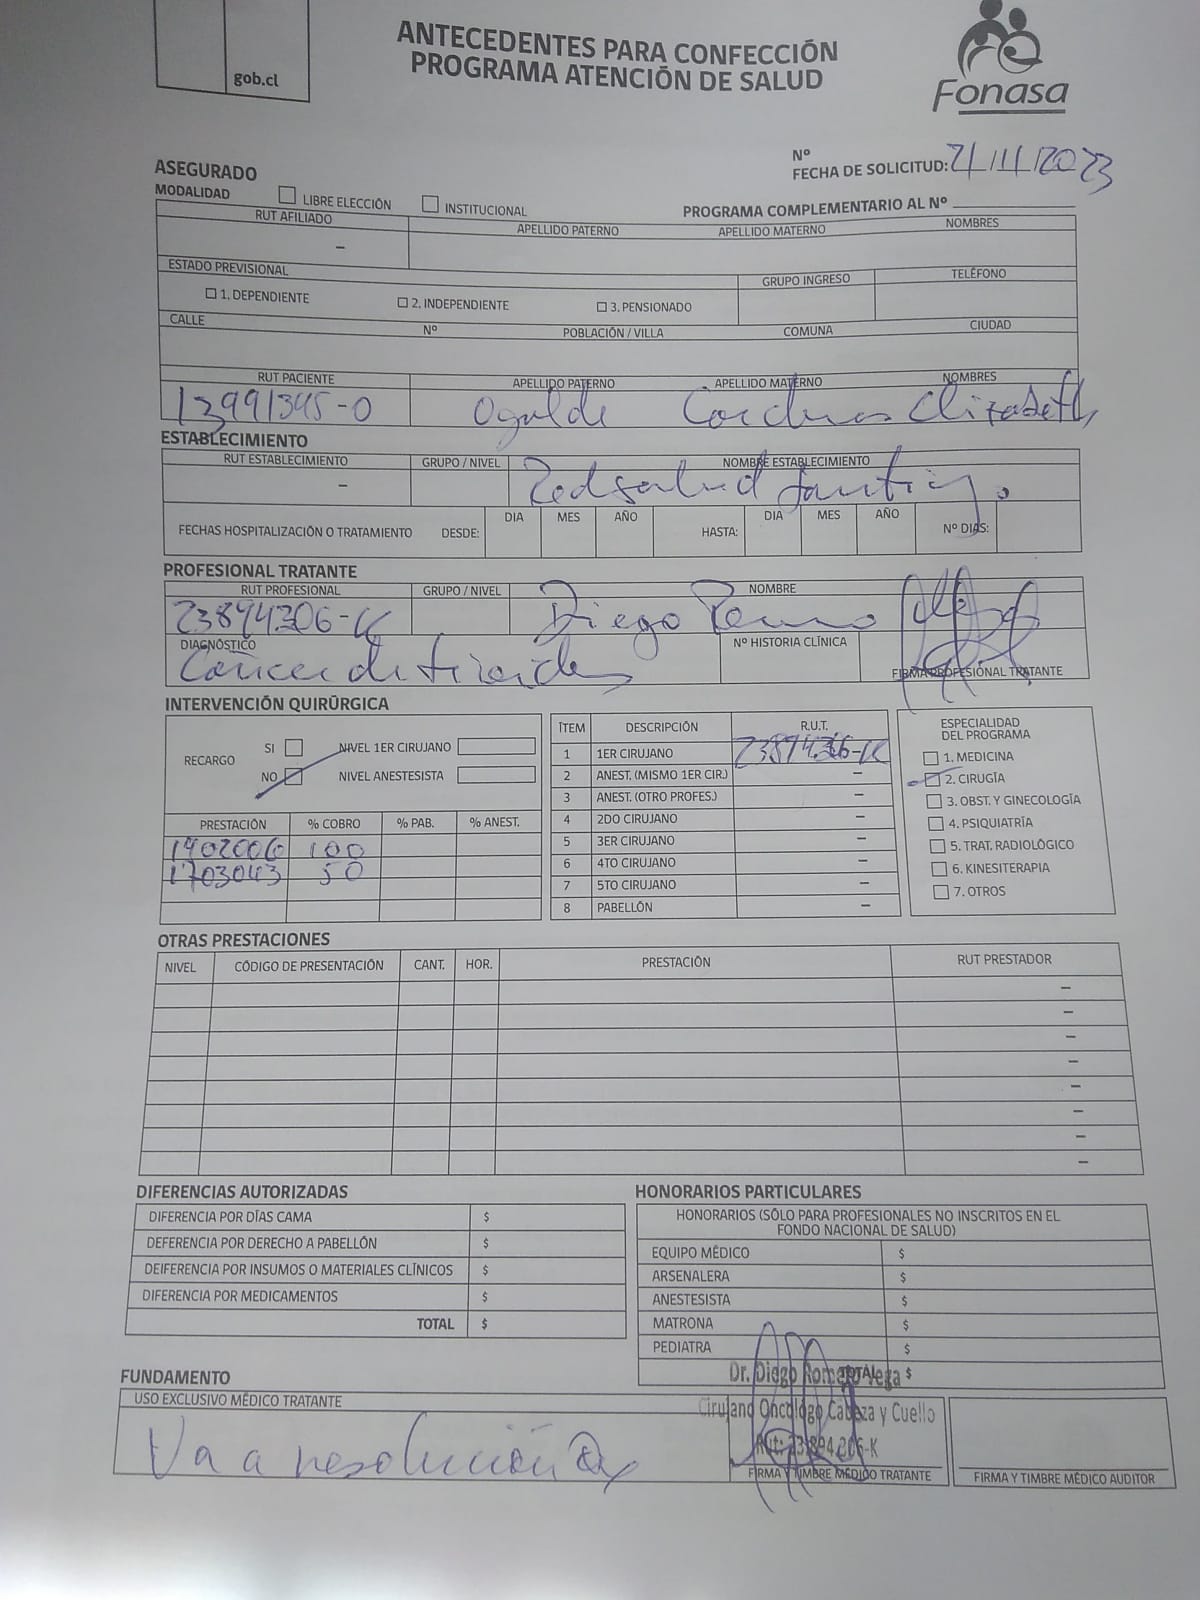 gob.cl
ANTECEDENTES PARA CONFECCIÓN
PROGRAMA ATENCIÓN DE SALUD
Fonasa
ASEGURADO
Nº
FECHA DE SOLICITUD: 21/11/2023
MODALIDAD LIBRE ELECCIÓN INSTITUCIONAL PROGRAMA COMPLEMENTARIO AL Nº
RUT AFILIADO APELLIDO PATERNO APELLIDO MATERNO NOMBRES
–
ESTADO PREVISIONAL GRUPO INGRESO TELÉFONO
1. DEPENDIENTE 2. INDEPENDIENTE 3. PENSIONADO
CALLE Nº POBLACIÓN / VILLA COMUNA CIUDAD
RUT PACIENTE APELLIDO PATERNO APELLIDO MATERNO NOMBRES
13991345-0 Ogalde Elizabeth
ESTABLECIMIENTO
RUT ESTABLECIMIENTO GRUPO / NIVEL NOMBRE ESTABLECIMIENTO
– Redsalud
DIA MES AÑO DIA MES AÑO
FECHAS HOSPITALIZACIÓN O TRATAMIENTO DESDE: HASTA: Nº DIAS:
PROFESIONAL TRATANTE
RUT PROFESIONAL GRUPO / NIVEL NOMBRE
Diego
DIAGNÓSTICO Nº HISTORIA CLÍNICA
Cáncer de tiroides
FIRMA PROFESIONAL TRATANTE
INTERVENCIÓN QUIRÚRGICA
RECARGO SI NIVEL 1ER CIRUJANO
NO NIVEL ANESTESISTA
PRESTACIÓN % COBRO % PAB. % ANEST.
1402006 100
1703043 50
ÍTEM DESCRIPCIÓN R.U.T.
1 1ER CIRUJANO
2 ANEST. (MISMO 1ER CIR.) –
3 ANEST. (OTRO PROFES.) –
4 2DO CIRUJANO –
5 3ER CIRUJANO –
6 4TO CIRUJANO –
7 5TO CIRUJANO –
8 PABELLÓN –
ESPECIALIDAD
DEL PROGRAMA
1. MEDICINA
2. CIRUGÍA
3. OBST. Y GINECOLOGÍA
4. PSIQUIATRÍA
5. TRAT. RADIOLÓGICO
6. KINESITERAPIA
7. OTROS
OTRAS PRESTACIONES
NIVEL CÓDIGO DE PRESENTACIÓN CANT. HOR. PRESTACIÓN RUT PRESTADOR
–
–
–
–
–
–
–
–
DIFERENCIAS AUTORIZADAS
DIFERENCIA POR DÍAS CAMA $
DEFERENCIA POR DERECHO A PABELLÓN $
DEIFERENCIA POR INSUMOS O MATERIALES CLÍNICOS $
DIFERENCIA POR MEDICAMENTOS $
TOTAL $
HONORARIOS PARTICULARES
HONORARIOS (SÓLO PARA PROFESIONALES NO INSCRITOS EN EL
FONDO NACIONAL DE SALUD)
EQUIPO MÉDICO $
ARSENALERA $
ANESTESISTA $
MATRONA $
PEDIATRA $
TOTAL $
Dr. Diego
Cirujano Oncólogo Cabeza y Cuello
FIRMA Y TIMBRE MÉDICO TRATANTE
FIRMA Y TIMBRE MÉDICO AUDITOR
FUNDAMENTO
USO EXCLUSIVO MÉDICO TRATANTE
Va a resolución